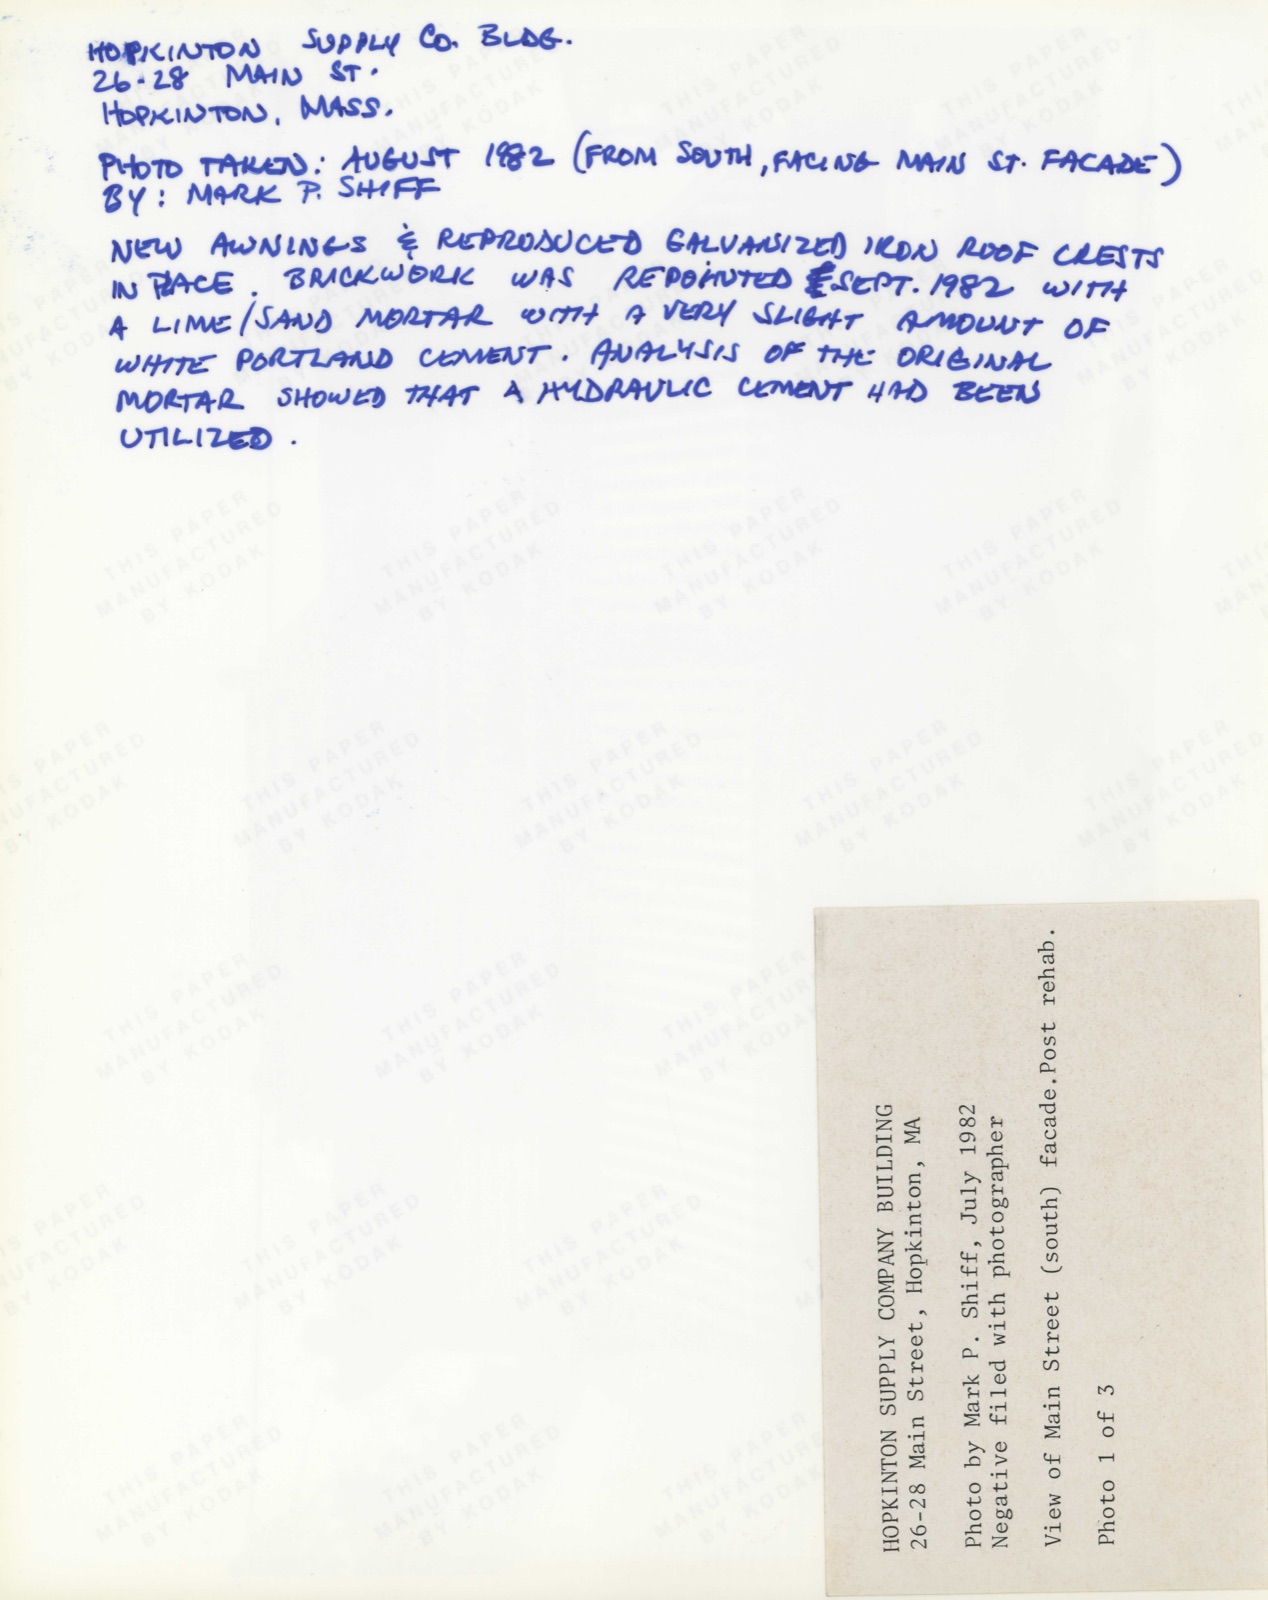 HOPKINTON SUPPLY CO. BLDG.
26-28 MAIN ST.
HOPKINTON, MASS.
PHOTO TAKEN: AUGUST 1982 (FROM SOUTH, FACING MAIN ST. FACADE)
BY: MARK P. SHIFF
NEW AWNINGS & REPRODUCED GALVANIZED IRON ROOF CRESTS
IN PLACE. BRICKWORK WAS REPOINTED SEPT. 1982 WITH
A LIME/SAND MORTAR WITH A VERY SLIGHT AMOUNT OF
WHITE PORTLAND CEMENT. ANALYSIS OF THE ORIGINAL
MORTAR SHOWED THAT A HYDRAULIC CEMENT HAD BEEN
UTILIZED.
HOPKINTON SUPPLY COMPANY BUILDING
26-28 Main Street, Hopkinton, MA
Photo by Mark P. Shiff, July 1982
Negative filed with photographer
View of Main Street (south) facade.Post rehab.
Photo 1 of 3
THIS PAPER
MANUFACTURED
BY KODAK